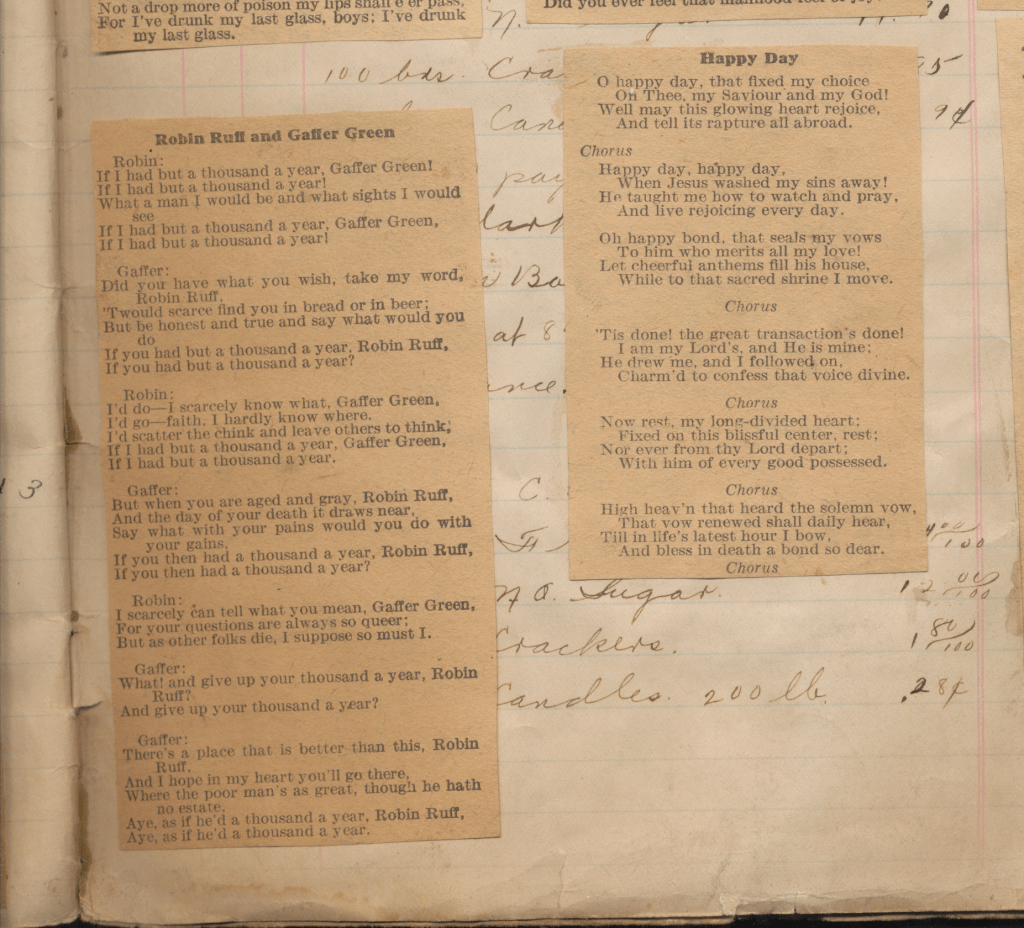 Not a drop more of poison my lips shall e'er pass,
For I've drunk my last glass, boys; I've drunk
my last glass.
Robin Ruff and Gaffer Green
Robin:
If I had but a thousand a year, Gaffer Green!
If I had but a thousand a year!
What a man I would be and what sights I would
see
If I had but a thousand a year, Gaffer Green,
If I had but a thousand a year!
Gaffer:
Did you have what you wish, take my word,
Robin Ruff,
'Twould scarce find you in bread or in beer;
But be honest and true and say what would you
do
If you had but a thousand a year, Robin Ruff,
If you had but a thousand a year?
Robin:
I'd do—I scarcely know what, Gaffer Green,
I'd go—faith, I hardly know where.
I'd scatter the chink and leave others to think,
If I had but a thousand a year, Gaffer Green,
If I had but a thousand a year.
Gaffer:
But when you are aged and gray, Robin Ruff,
And the day of your death it draws near,
Say what with your pains would you do with
your gains,
If you then had a thousand a year, Robin Ruff,
If you then had a thousand a year?
Robin:
I scarcely can tell what you mean, Gaffer Green,
For your questions are always so queer;
But as other folks die, I suppose so must I.
Gaffer:
What! and give up your thousand a year, Robin
Ruff?
And give up your thousand a year?
Gaffer:
There's a place that is better than this, Robin
Ruff,
And I hope in my heart you'll go there,
Where the poor man's as great, though he hath
no estate,
Aye, as if he'd a thousand a year, Robin Ruff,
Aye, as if he'd a thousand a year.
Did you ever feel that manhood
Happy Day
O happy day, that fixed my choice
On Thee, my Saviour and my God!
Well may this glowing heart rejoice,
And tell its rapture all abroad.
Chorus
Happy day, happy day,
When Jesus washed my sins away!
He taught me how to watch and pray,
And live rejoicing every day.
Oh happy bond, that seals my vows
To him who merits all my love!
Let cheerful anthems fill his house,
While to that sacred shrine I move.
Chorus
'Tis done! the great transaction's done!
I am my Lord's, and He is mine;
He drew me, and I followed on,
Charm'd to confess that voice divine.
Chorus
Now rest, my long-divided heart;
Fixed on this blissful center, rest;
Nor ever from thy Lord depart;
With him of every good possessed.
Chorus
High heav'n that heard the solemn vow,
That vow renewed shall daily hear,
Till in life's latest hour I bow,
And bless in death a bond so dear.
Chorus
100 bxs. Cra 5
Can 9¢
pay
at 8
C.
3
N O. Sugar. 12 00/100
Crackers. 1 80/100
Candles. 200 lb. .28¢